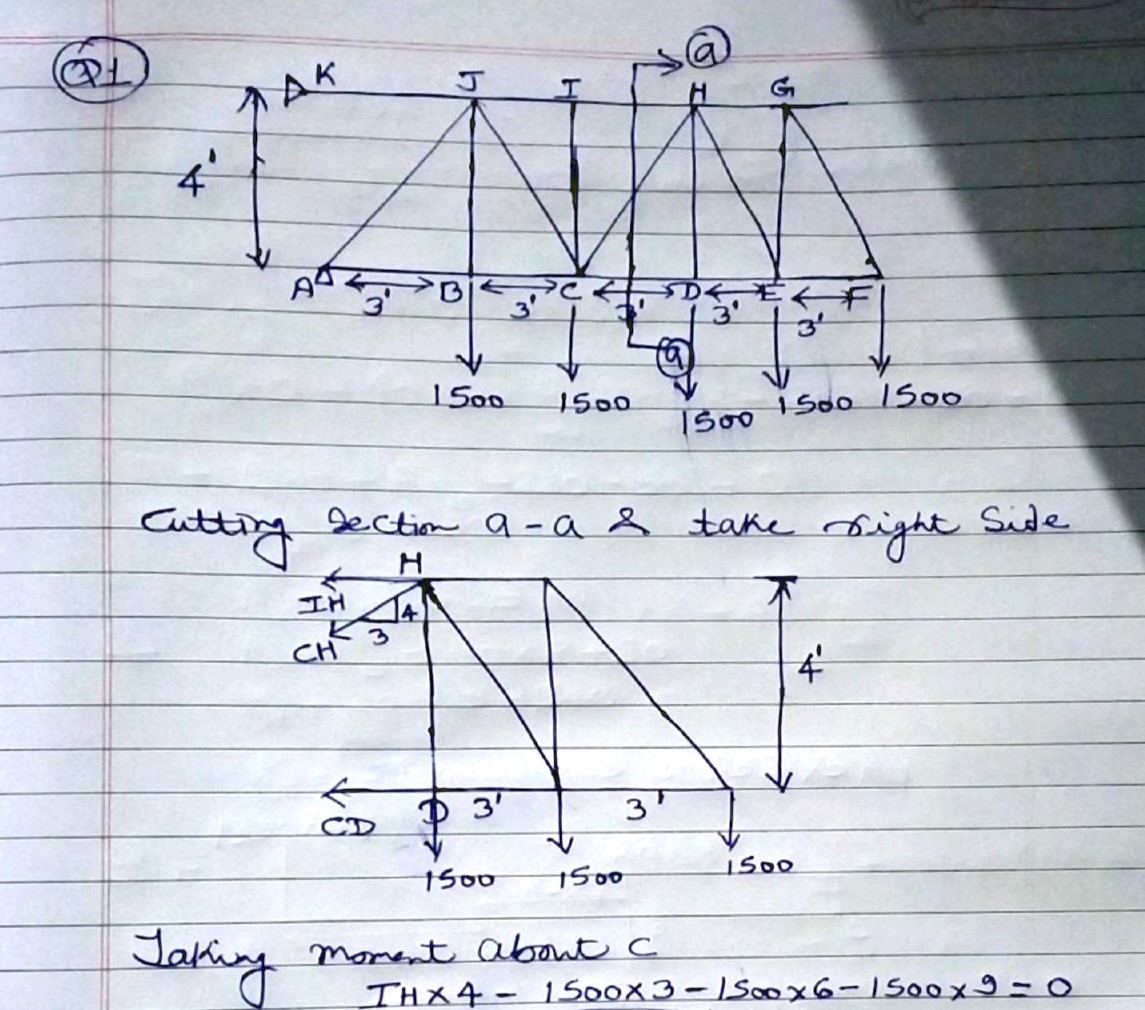 Q1
a
K J I H G
4'
A 3' B 3' C 3' D 3' E 3' F
a
1500 1500 1500 1500 1500
Cutting Section a-a & take right Side
H
IH
4
3
CH
4'
CD D 3' 3'
1500 1500 1500
Taking moment about C
IH×4 - 1500×3 - 1500×6 - 1500×9 = 0